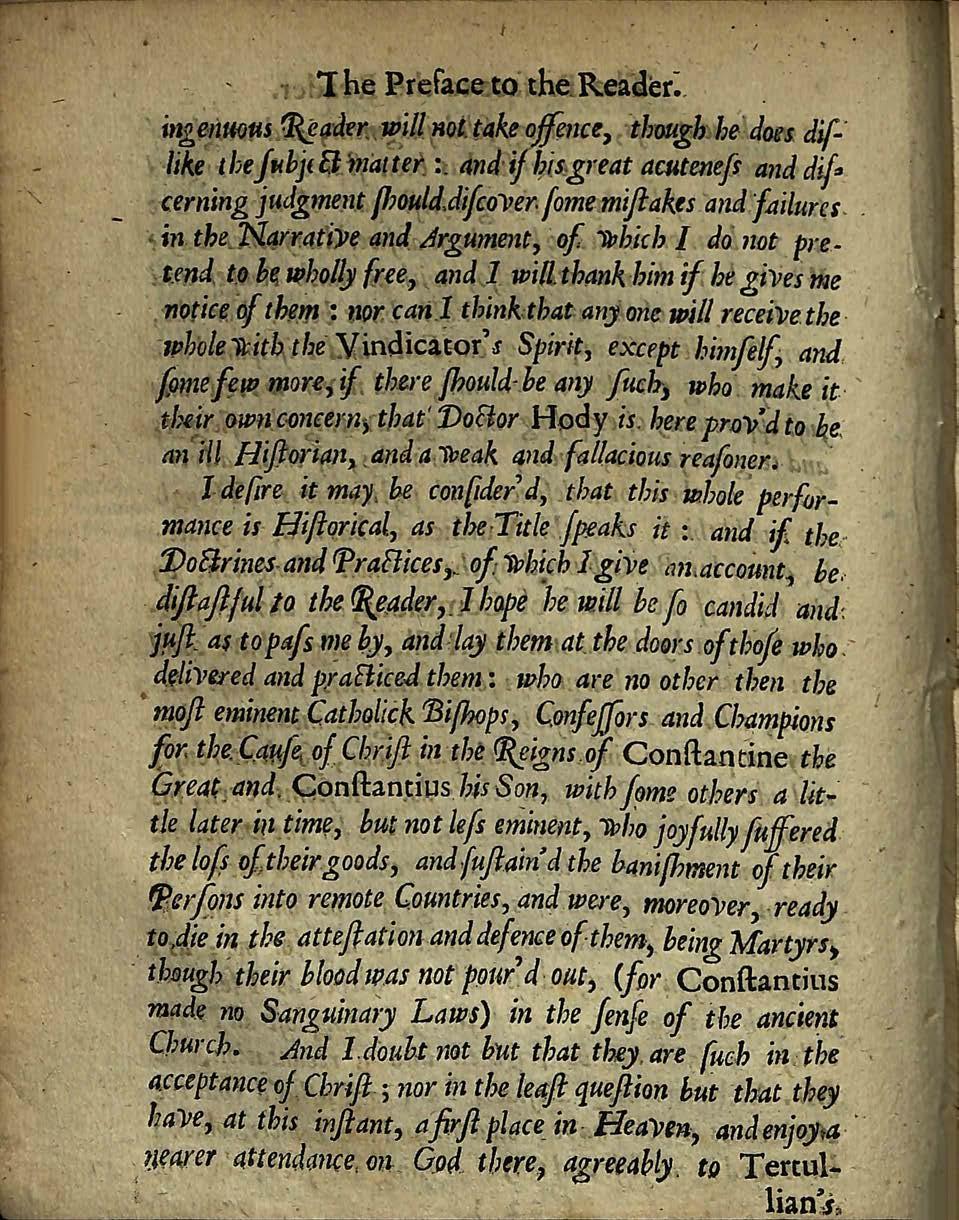 The Preface to the Reader.
ingenuous Reader will not take offence, though he does diſ-
like the ſubject matter : and if his great acuteneſs and diſ-
cerning judgment ſhould diſcover ſome miſtakes and failures
in the Narrative and Argument, of which I do not pre-
tend to be wholly free, and I will thank him if he gives me
notice of them : nor can I think that any one will receive the
whole with the Vindicator's Spirit, except himſelf, and
ſome few more, if there ſhould be any ſuch, who make it
their own concern, that Doctor Hody is here prov'd to be
an ill Hiſtorian, and a weak and fallacious reaſoner.
I deſire it may be conſider'd, that this whole perfor-
mance is Hiſtorical, as the Title ſpeaks it : and if the
Doctrines and Practices, of which I give an account, be
diſtaſtful to the Reader, I hope he will be ſo candid and
juſt as to paſs me by, and lay them at the doors of thoſe who
delivered and practiced them : who are no other then the
moſt eminent Catholick Biſhops, Confeſſors and Champions
for the Cauſe of Chriſt in the Reigns of Conſtantine the
Great and Conſtantius his Son, with ſome others a lit-
tle later in time, but not leſs eminent, who joyfully ſuffered
the loſs of their goods, and ſuſtain'd the baniſhment of their
Perſons into remote Countries, and were, moreover, ready
to die in the atteſtation and defence of them, being Martyrs,
though their blood was not pour'd out, (for Conſtantius
made no Sanguinary Laws) in the ſenſe of the ancient
Church. And I doubt not but that they are ſuch in the
acceptance of Chriſt ; nor in the leaſt queſtion but that they
have, at this inſtant, a firſt place in Heaven, and enjoy a
nearer attendance on God there, agreeably to Tertul-
lian's